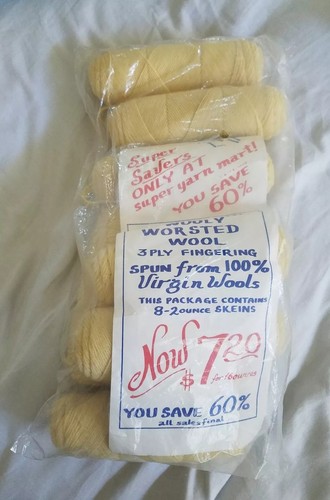 Super
Savers
ONLY AT
super yarn mart!
YOU SAVE
60%
WOOLY
WORSTED
WOOL
3 PLY FINGERING
SPUN from 100%
Virgin Wools
THIS PACKAGE CONTAINS
8-2 OUNCE SKEINS
Now
$7.20
for 16 ounces
YOU SAVE 60%
all sales final